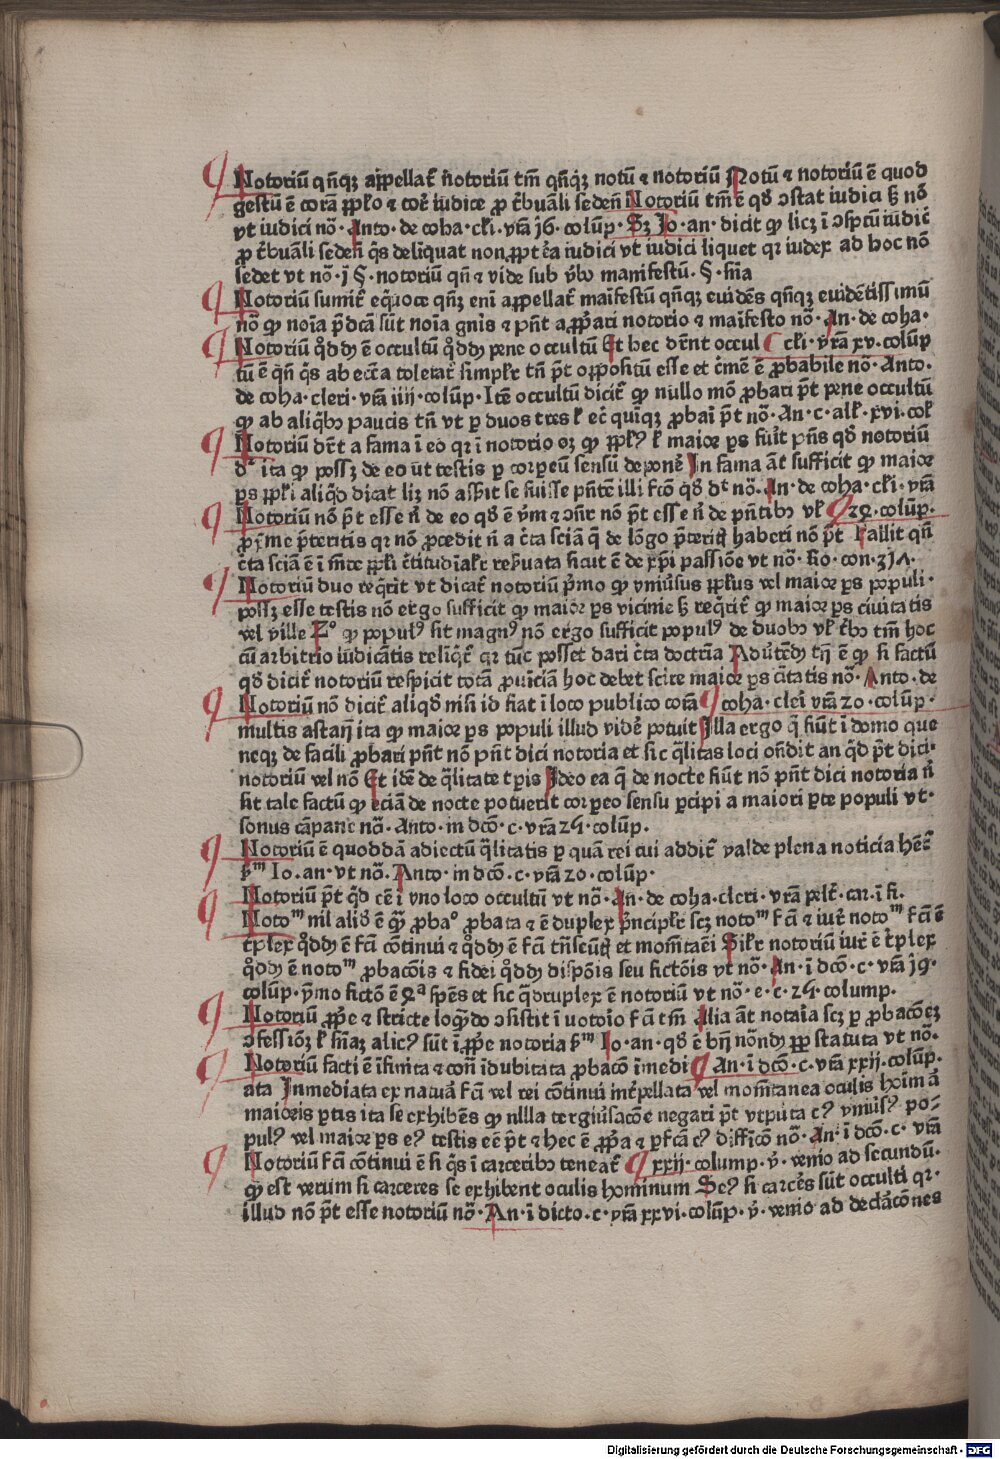 Notoriū qn̄qꝫ appellat̄ notoriū tm̄ qn̄qꝫ notū ⁊ notoriū Notū ⁊ notoriū ē quod
gestū ē corā ppl̓o ⁊ corā iudice ꝓ tribunali seden̄ Notoriū tm̄ ē qd̓ ↄstat iudici sꝫ nō
vt iudici nō· Anto· de coha· cl̓i· vr̄a j6· colūp· Sꝫ Jo·an· dicit qꝫ licꝫ ī ↄsp̄ctū iudic̄
ꝓ tribunali seden̄ q̇s deliquat non ꝓpt̓ea iudici vt iudici liquet qꝛ iudex ad hoc nō
sedet vt nō· j §· notoriū qn̄ ⁊ vide sub v̓bo manifestū· §· sn̄ia
Notoriū sumit̄ eq̇uoce qn̄qꝫ eni appellat̄ maīfestū qn̄qꝫ euidēs qn̄qꝫ euidētissimū
nō qꝫ noīa p̄dcā sūt noīa gn̄is ⁊ pn̄t appꝓari notorio ⁊ maīfesto nō· An· de coha·
Notoriū qd̓dā ē occultū qd̓dā pene occultū Et hec dr̄nt occul ¶ cl̓i· vr̄a xv· colūp
tū ē qn̄ q̇s ab ecc̄a tolerat̄ simpl̓r tn̄ p̄t oppositū esse et c̓mē ē ꝓbabile nō· Anto·
de coha· cleri· vr̄a iiij· colūp· Itē occultū dicit̄ qꝫ nullo mō ꝓbari p̄t pene occultū
qꝫ ab aliq̇bꝫ paucis tn̄ vt ꝑ duos tres l̓ ec̄ quīqꝫ ꝓbaī p̄t nō· An· c· alt̓· xvi· col̓
Notoriū dr̄t a fama ī eo qꝛ ī notorio oꝫ qꝫ ppl̓s l̓ maior ps fuit pn̄s qd̓ notoriū
dr̄ ita qꝫ possꝫ de eo vt testis ꝑ corpeū sensū deponē In fama āt sufficit qꝫ maior
ps ppl̓i aliq̇d dicat licꝫ nō assit se fuisse pn̄tē illi fc̄o qd̓ dr̄ nō· An· de coha· cl̓i· vr̄a
Notoriū nō p̄t esse n̄ de eo qd̓ ē v̓m ⁊ ↄn̄r nō p̄t esse n̄ de pn̄tibꝫ vl̓ ¶ 29· colūp·
ꝓx̄me p̄teritis qꝛ nō ꝓcedit n̄ a c̓ta sciā q̄ de lōgo p̄terito haberi nō p̄t Fallit qn̄
c̓ta sciā ē ī mēte ppl̓i c̓titudīal̓r reseruata sicut ē de xp̄i passiōe vt nō· sio· con· 31Λ·
Notoriū duo req̇rit vt dicat̄ notoriū p̄mo qꝫ vniūsus ppl̓us vel maior ps populi·
possꝫ esse testis nō ergo sufficit qꝫ maior ps vicinie sꝫ req̇rit̄ qꝫ maior ps ciuitatis
vel ville 2° qꝫ popul̓ sit magn̓ nō ergo sufficit popul̓ de duobꝫ vl̓ tribꝫ tm̄ hoc
cū arbitrio iudicātis reliq̇t̄ qꝛ tūc posset dari c̓ta doctrīa Aduertēdū tn̄ ē qꝫ si factū
qd̓ dicit̄ notoriū respicit totā ꝓuīciā hoc debet scire maior ps c̄tatis nō· Anto· de
Notoriū nō dicit̄ aliqd̓ nisi id fiat ī loco publico corā ¶ coha· cleri vr̄a 20· colūp·
multis astan̄ ita qꝫ maior ps populi illud videre potuit Illa ergo q̄ fiūt ī domo que
neqꝫ de facili ꝓbari pn̄t nō pn̄t dici notoria et sic q̄litas loci on̄dit an qd̓ p̄t dici·
notoriū vel nō Et idē de q̄litate tꝑis Ideo ea q̄ de nocte fiūt nō pn̄t dici notoria n̄
sit tale factū qꝫ eciā de nocte potuerit corpeo sensu ꝑcipi a maiori ꝑte populi vt·
sonus cāpane nō· Anto· in dc̄o· c· vr̄a 24· colūp·
Notoriū ē quoddā adiectū q̄litatis ꝑ quā rei cui addit̄ valde plena noticia hēt̄
sm̄ Jo·an· vt nō· Anto· in dc̄o· c· vr̄a 20· colūp·
Notoriū p̄t q̇d eē ī vno loco occultū vt nō· An· de coha· cleri· vr̄a pel̓t· car· ī fi·
Notom̄ nil aliud ē qꝫ ꝓbao ꝓbata ⁊ ē duplex p̄ncipl̓r scꝫ notom̄ fc̄i ⁊ iur̓ notom̄ fc̄i ē
t̓plex qd̓dā ē fc̄i cōtinui ⁊ qd̓dā ē fc̄i trāseūtꝫ et momētaēi Sil̓r notoriū iur̓ ē t̓plex
qd̓dā ē notom̄ ꝓbacōis ⁊ fidei qd̓dā dispōis seu fictōis vt nō· An· ī dc̄o· c· vr̄a j9·
colūp· v̓mo fictō ē 4ᵃ spēs et sic q̇druplex ē notoriū vt nō· e· c· 24· colump·
Notoriū ꝓp̄e ⁊ stricte loqn̄do ↄsistit ī notoio fc̄i tm̄ Alia āt notaīa scꝫ ꝑ ꝓbacōeꝫ
ↄfessioꝫ l̓ sn̄iaꝫ alic̓ sūt īꝓp̄e notoria sm̄ Jo·an· qd̓ ē bn̄ nōndū ꝓpt̓ statuta vt nō·
Notoriū facti ē īfinita ⁊ con̄ īdubitata ꝓbacō īmedi ¶ An· ī dc̄o· c· vr̄a xxij· colūp·
ata Inmediata ex natura fc̄i vel rei cōtinui int̓pellata vel momētanea oculis hoīm a
maioris ꝑtis ita se exhibēs qꝫ nulla tergiūsacōe negari p̄t vtputa c̓ vniūs̓ po⸗
pul̓ vel maior ps e̓ testis eē p̄t ⁊ hec ē ꝓp̄a ⁊ ꝑfc̄a c̓ diffīcō nō· An· ī dc̄o· c· vr̄a
Notoriū fc̄i cōtinui ē si q̇s ī carceribꝫ teneat̄ ¶ xxij· colump· v̓· venio ad secundū·
qꝫ est verum si carceres se exhibent oculis hominum Sec̓ si carcēs sūt occulti qꝛ·
illud nō p̄t esse notoriū nō· An· ī dicto· c· vr̄a xxvi· colūp· v̓· venio ad declaracōnes
Digitalisierung gefördert durch die Deutsche Forschungsgemeinschaft - DFG